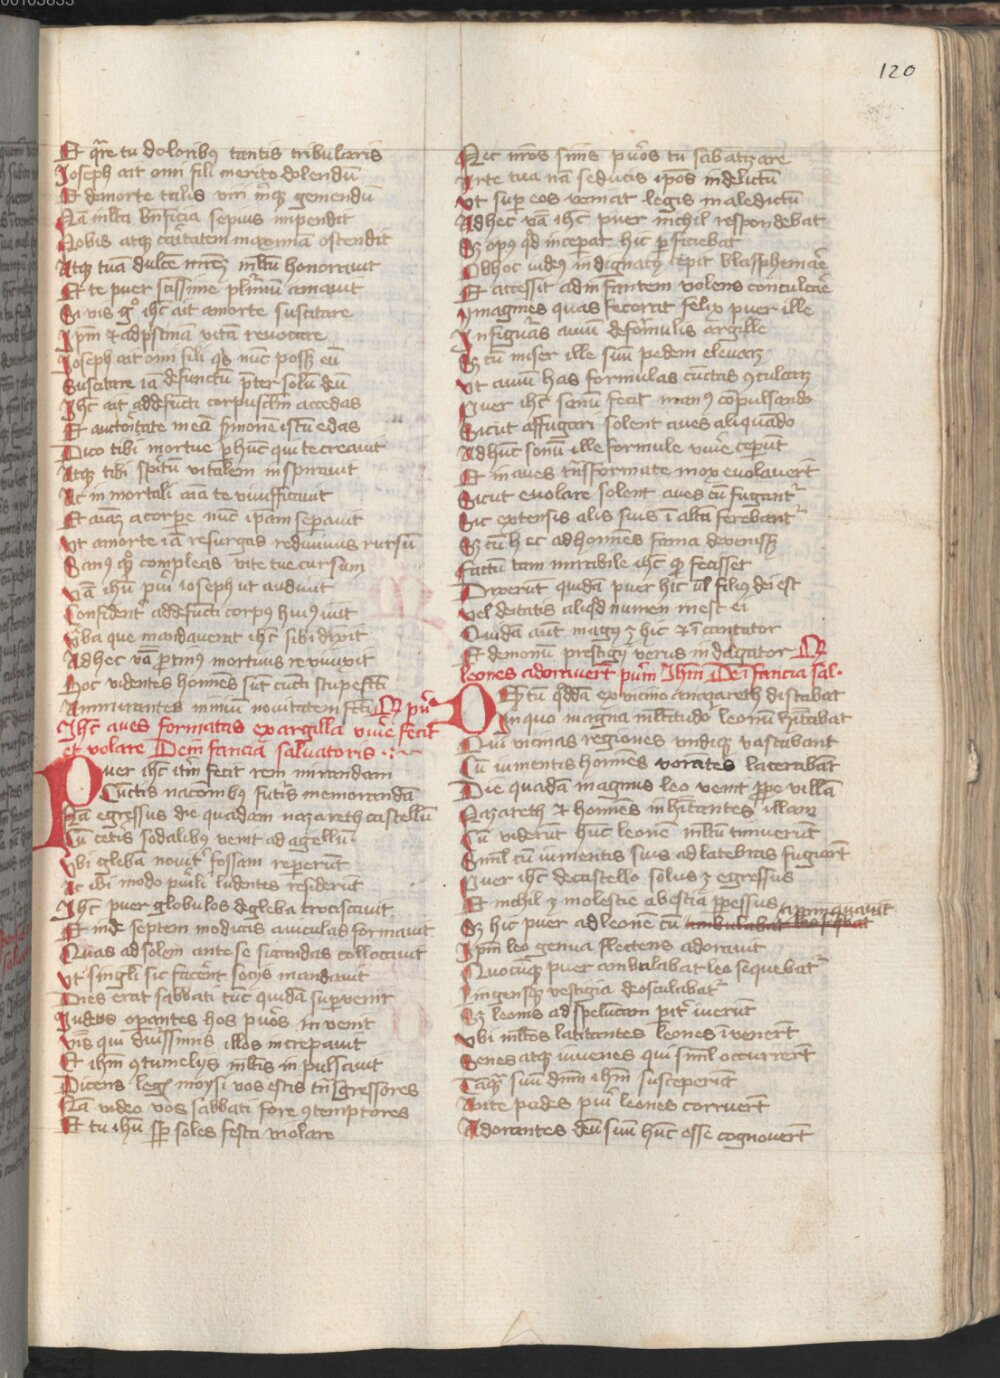 120
Et qͣre tu doloribꝯ tantis tribularis
Joseph ait omi fili merito dolendū
Et demorte talis viri mͥqꝫ gemendū
Nā mlta bn̄ficia sepius impendit
Nobis atqꝫ caritatem maximā ostendit
Atqꝫ tuā dulcē mrēꝫ mltū honorauit
Et te puer scissime plīmū amauit
Si vis gͦ ihc̄ ait amorte suscitare
Ipm̄ et adpstinā vitā reuocare
Joseph ait omi fili qͥs nūc possꝫ eū
Suscitare iā defunctū p̄ter solū deū
Ihc̄ ait addefūcti corpusclm̄ accedas
Et auctoritate mea ẜmonē istū edas
Dico tibi mortue ꝑ hūc qui te creauit
Atqꝫ tibi spritū vitalem inspirauit
Ac in mortali aīa te viuificauit
Et aīaꝫ acorpe nūc ipam separauit
Ut amorte iā resurgas rediuiuus rursū
Sanꝯ qꝫ compleas vite tue cursum
Uā ihū pͥui ioseph ut audiuit
Confident addefūcti corpꝯ huiꝯ iuit
Ūba que mandauerat ihc̄ sibi dixit
Adhec vā ꝓtinꝯ mortuus reuixit
Hoc videntes homēs sūt cūcti stupefcti
Ammirantes nimiū nouitatem fcti
Ihc̄ aues formatas exargilla viuē fecit
et volare De infancia saluatoris
Puer ihc̄ itm̄ fecit rem mirandam
Cūctis nacionibꝯ futris memorandā
Nā egressus die quadam nazareth castellū
Cū cetis sodalibꝯ venit ad agellū
Ubi gleba nouit fossam repperūt
Ac ibi modo pͥuili ludentes residerūt
Ihc̄ puer globulos degleba trociscauit
Et inde septem modicas auiculas formauit
Quas ad solem ante se siccandas collocauit
Ut singli sic facent socijs mandauit
Dies erat sabbati tūc quidā supuenit
Judeus opantes hos pueros inuenit
Vis qui diuissimis illos increpauit
Et ihm̄ ꝯtumelijs mltis inpulsauit
Dicens legē moysi vos estis trāsgressores
Nā video vos sabbati fore ꝯtemptores
Et tu ihū sꝑ soles festa violare
Nec nr̄os sinis puos tu sabatizare
Arte tua nā seducis ipos indelictū
Ut super eos veniat legis maledictū
Adhec vā ihc̄ puer nichil respondebat
Sꝫ opꝯ qd̄ inceperat hic perficiebat
Obhoc iudeꝯ indignatꝯ cepit blasphemare
Et accessit ad infantem volens conculcāe
Ymagines quas fecerat felix puer ille
In figuras auiū deformulis argille
Sꝫ cū miser ille suū pedem eleuaꝫ
Ut auiū has formulas cūctas ꝯculcaꝫ
Puer ihc̄ sonū fecit manꝯ cōpulsando
Sicut affugari solent aues aliquādo
Adhūc sonū ille formule viuē ceperūt
Et in aues trāsformate mox euolauerūt
Sicut euolare solent aues cū fugantr
Sic extensis alis suis ī altū ferebantr
Sꝫ cū hec adhomines fama deuenissꝫ
Factū tam mirabile ihc̄ qͥ fecisset
Dixerūt quidā puer hic ul filiꝯ dei est
Vel deitatis aliqd numen inest ei
Quidā aūt magꝯ ꝫ hic et īcantator
Et demonū prestigij verus indagator
leones adorauerūt puerū Ihm̄ De īfancia sal.
Extū qͣddā exvicino anazareth distabat
In quo magna mltitudo leonū hītabat
Qui vicinas regiones undiqꝫ vastabant
Cū iumentis homines vorātes laterabāt
Die quadā magnus leo venit ꝓpe villā
Nazareth et homines inhītantes illam
Cū viderūt hūc leonē mltū timuerūt
Siml cū iumentis suis ad latebras fugierūt
Puer ihc̄ decastello solus ꝫ egressus
Et nichil ꝫ molestie abestia ꝑpessus
Sꝫ hic puer ad leonē cū appropinquauit
Ipm̄ leo genua flectens adorauit
Quocūqꝫ puer ambulabat leo sequebatr
Lingensqꝫ vestigia deosculabatr
Sꝫ leonis ad speluncam pit̄ iuerūt
Ubi mltos latitantes leones īuenerūt
Senes atqꝫ iuuenes qui siml occurrerūt
Tāqͣꝫ suū dnm̄ ihm̄ susceperūt
Ante pedes pͥui leones corruerūt
Adorantes deū suū hūc esse cognouerūt